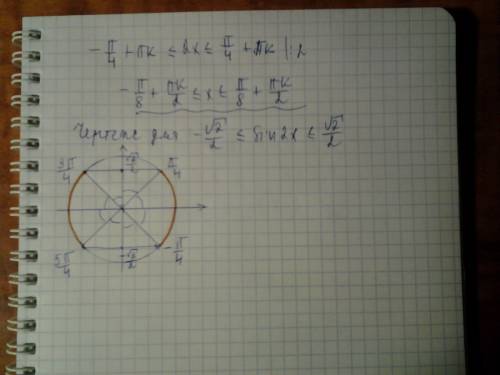 -π/4 + πk ≤ 2x ≤ π/4 + πk |:2
-π/8 + πk/2 ≤ x ≤ π/8 + πk/2
Чертёж для -√2/2 ≤ sin2x ≤ √2/2
3π/4 √2/2 π/4
5π/4 -√2/2 -π/4